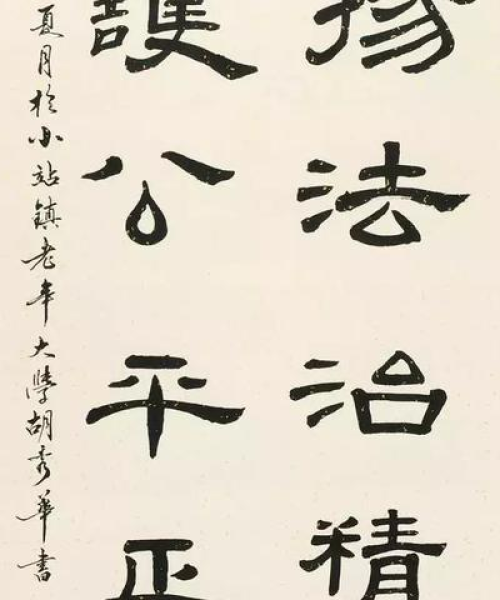 揚法治精
護公平正
夏月於小站鎮老年大學胡秀華書